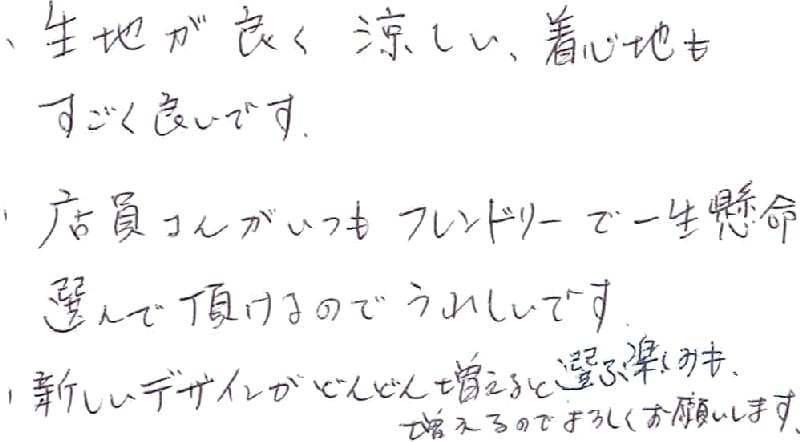 、生地が良く涼しい、着心地も
すごく良いです.
、店員さんがいつもフレンドリーで一生懸命
選んで頂けるのでうれしいです.
、新しいデザインがどんどん増えると選ぶ楽しみも、
増えるのでよろしくお願いします、